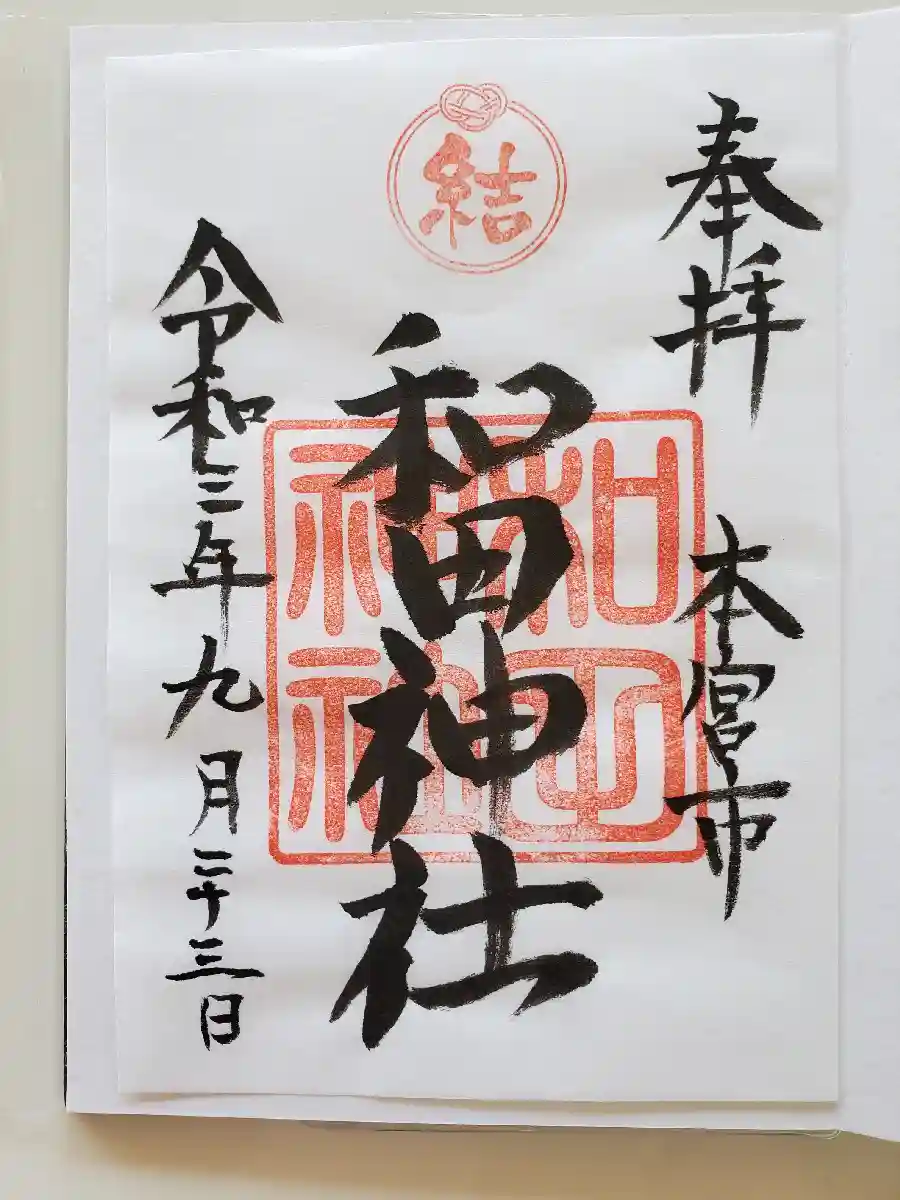 奉拝
本宮市
結
和田神社
和田
神社
令和三年九月二十三日